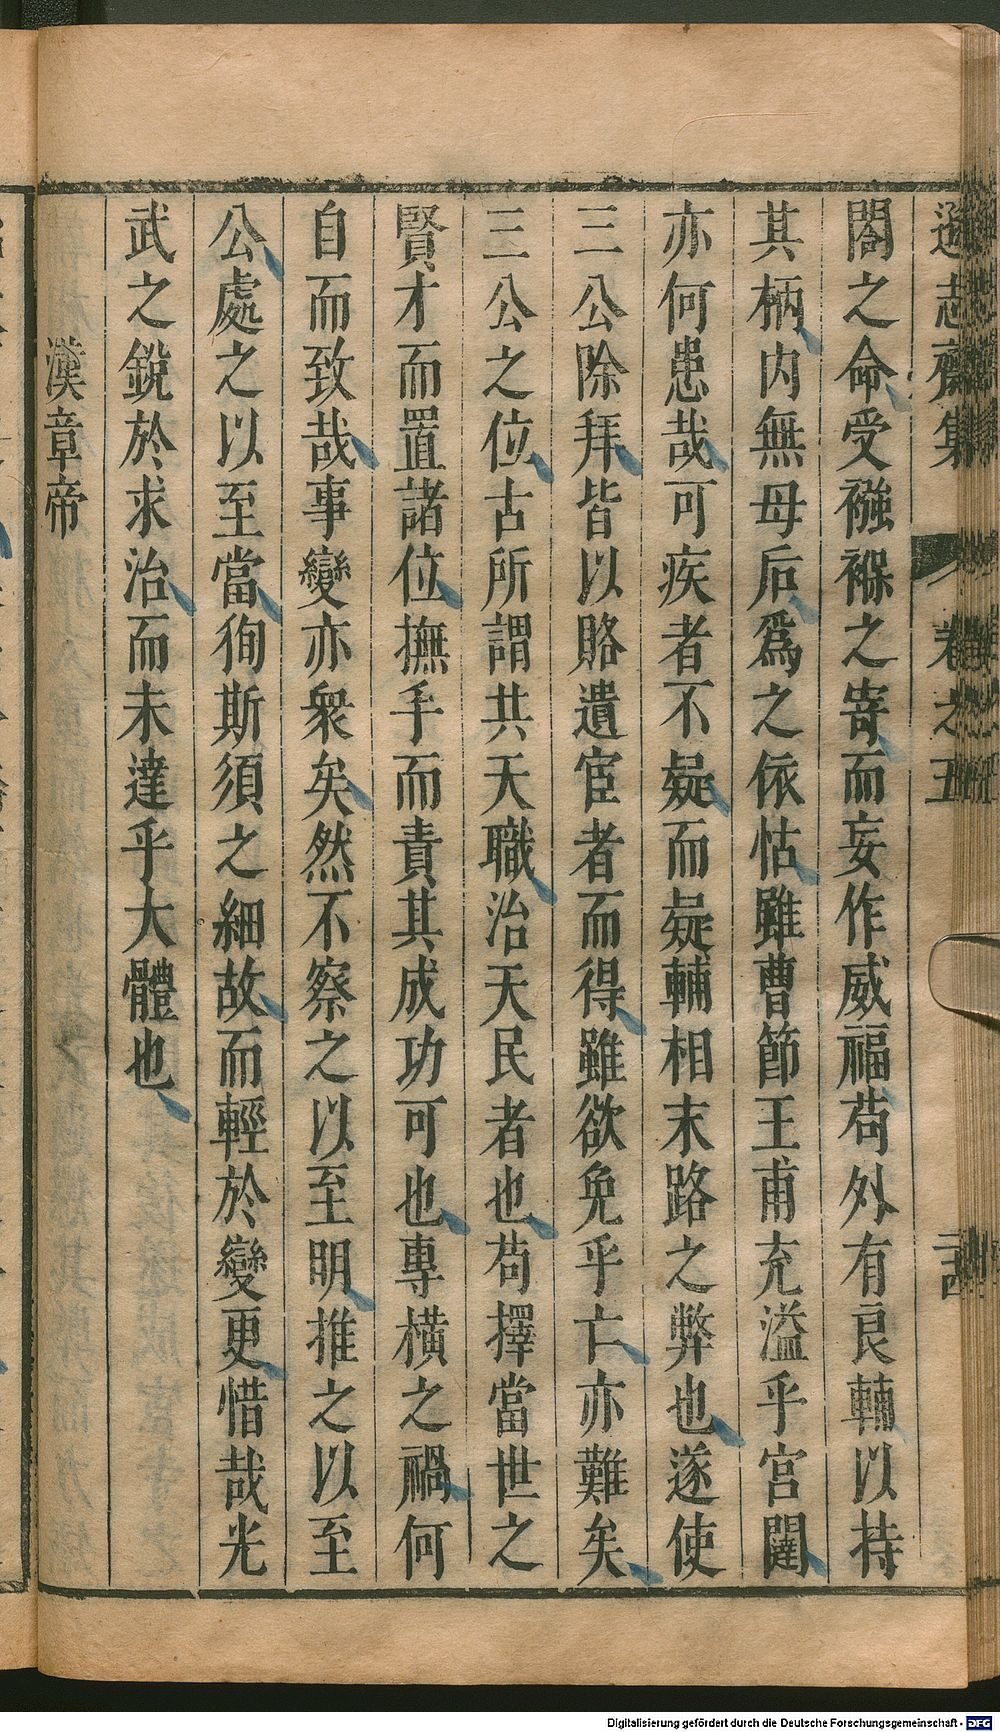 遜志齋集 卷之五
閣之命受襁褓之寄而妄作威福苟外有良輔以持
其柄內無母后爲之依怙雖曹節王甫充溢乎宮闥
亦何患哉可疾者不疑而疑輔相末路之弊也遂使
三公除拜皆以賂遺宦者而得雖欲免乎亡亦難矣
三公之位古所謂共天職治天民者也苟擇當世之
賢才而置諸位撫手而責其成功可也專橫之禍何
自而致哉事變亦衆矣然不察之以至明推之以至
公處之以至當徇斯須之細故而輕於變更惜哉光
武之銳於求治而未達乎大體也
漢章帝
Digitalisierung gefördert durch die Deutsche Forschungsgemeinschaft - DFG